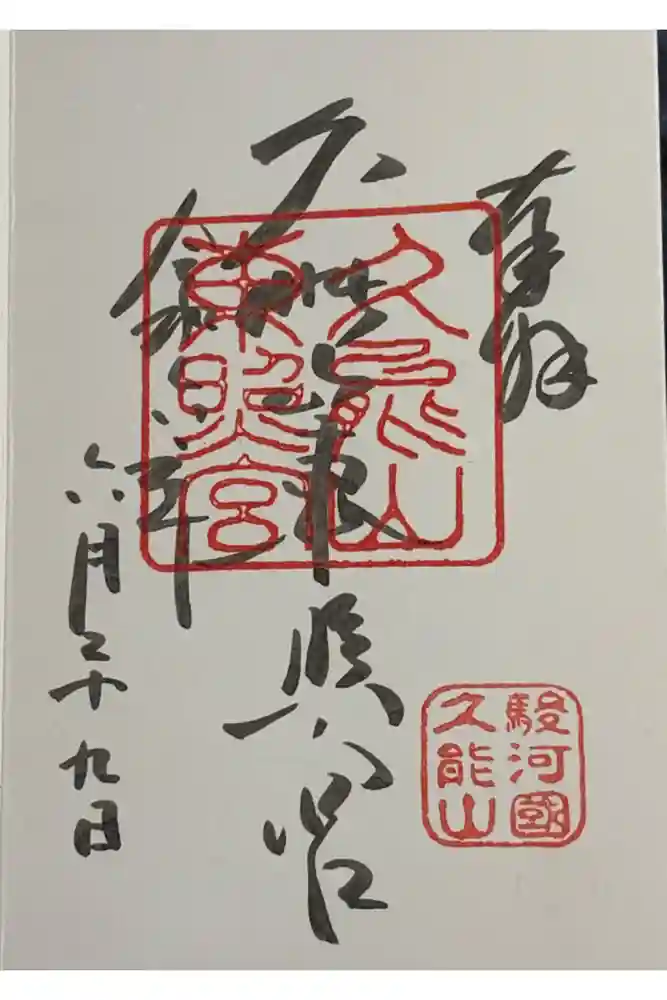 奉拝
久能山東照宮
久能山
東照宮
令和
六月二十九日
駿河國
久能山